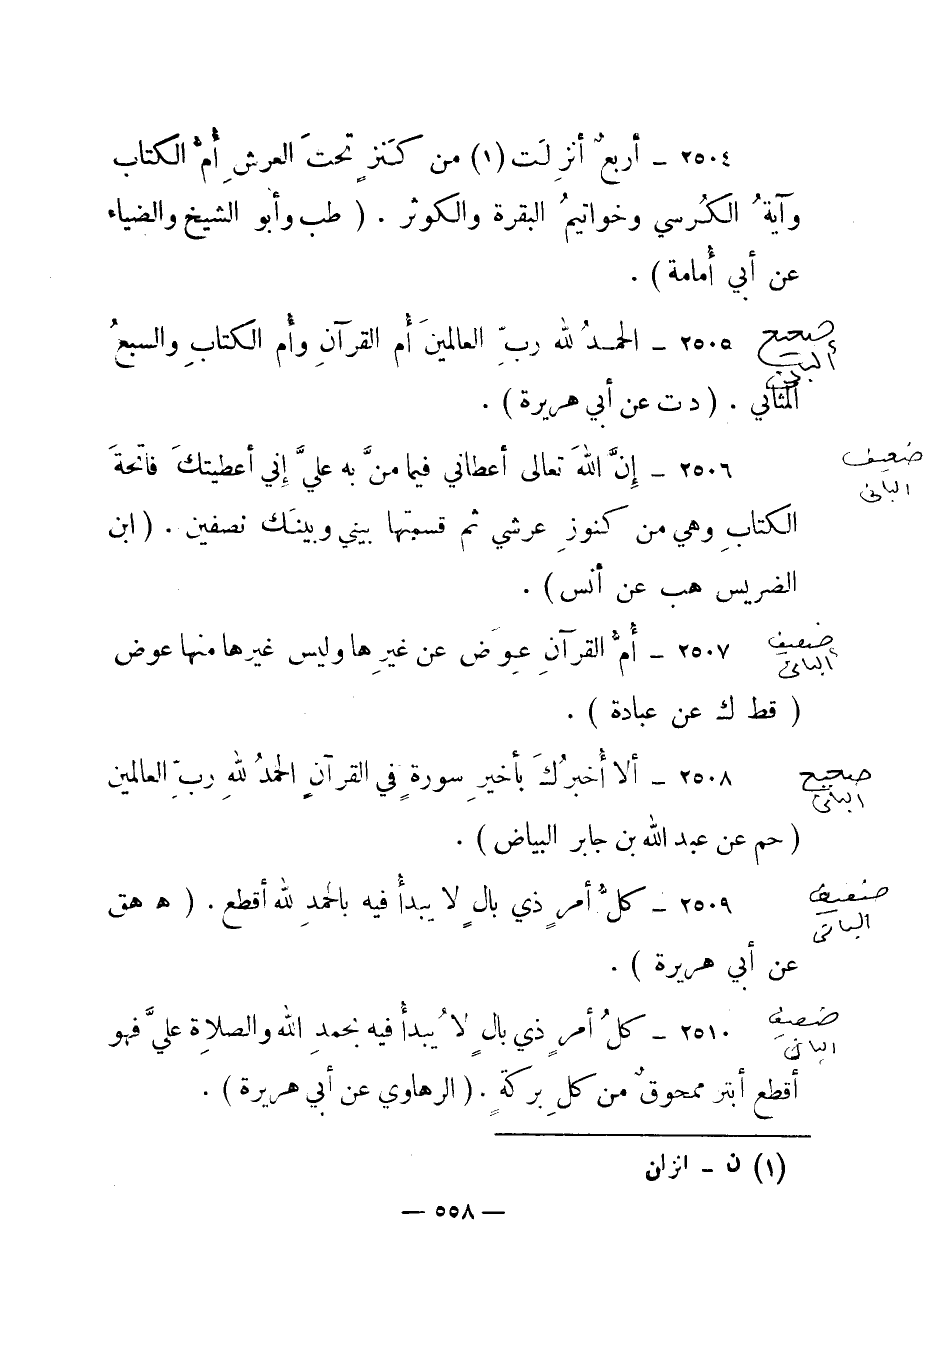 ٢٥٠٤ ــ أربعٌ أنزِلَت (١) من كَنزٍ تحتَ العرشِ أُمُّ الكتاب
وآيةُ الكُرسي وخواتيمُ البقرة والكوثر . ( طب وأبو الشيخ والضياء
عن أبي أُمامة ) .
صحيح ٢٥٠٥ ــ الحمدُ لله ربِّ العالمينَ أُم القرآنِ وأُم الكتابِ والسبعُ
ألباني
المثاني . ( د ت عن أبي هريرة ) .
ضعيف ٢٥٠٦ ــ إِنَّ اللهَ تعالى أعطاني فيما منَّ به عليَّ إِني أعطيتكَ فاتحةَ
الباني
الكتابِ وهي من كنوزِ عرشي ثم قسمتها بيني وبينَك نصفين . ( ابن
الضريس هب عن أنس ) .
ضعيف ٢٥٠٧ ــ أُمُّ القرآنِ عِوَض عن غيرِها وليس غيرها منها عوض
ألباني
( قط ك عن عبادة ) .
صحيح ٢٥٠٨ ــ ألا أُخبرُكَ بأخيرِ سورةٍ في القرآنِ الحمدُ للهِ ربِّ العالمين
الباني
( حم عن عبد الله بن جابر البياض ) .
ضعيف ٢٥٠٩ ــ كلُّ أمرٍ ذي بالٍ لا يبدأُ فيه بالحمدِ لله أقطع . ( ه هق
الباني
عن أبي هريرة ) .
ضعيف ٢٥١٠ ــ كلُ أمرٍ ذي بالٍ لا يُبدأُ فيه بحمدِ الله والصلاةِ عليَّ فهو
الباني
أقطع أبتر ممحوقٌ من كلِ بركةٍ . ( الرهاوي عن أبي هريرة ) .
(١) ن ــ انزلن
— ٥٥٨ —